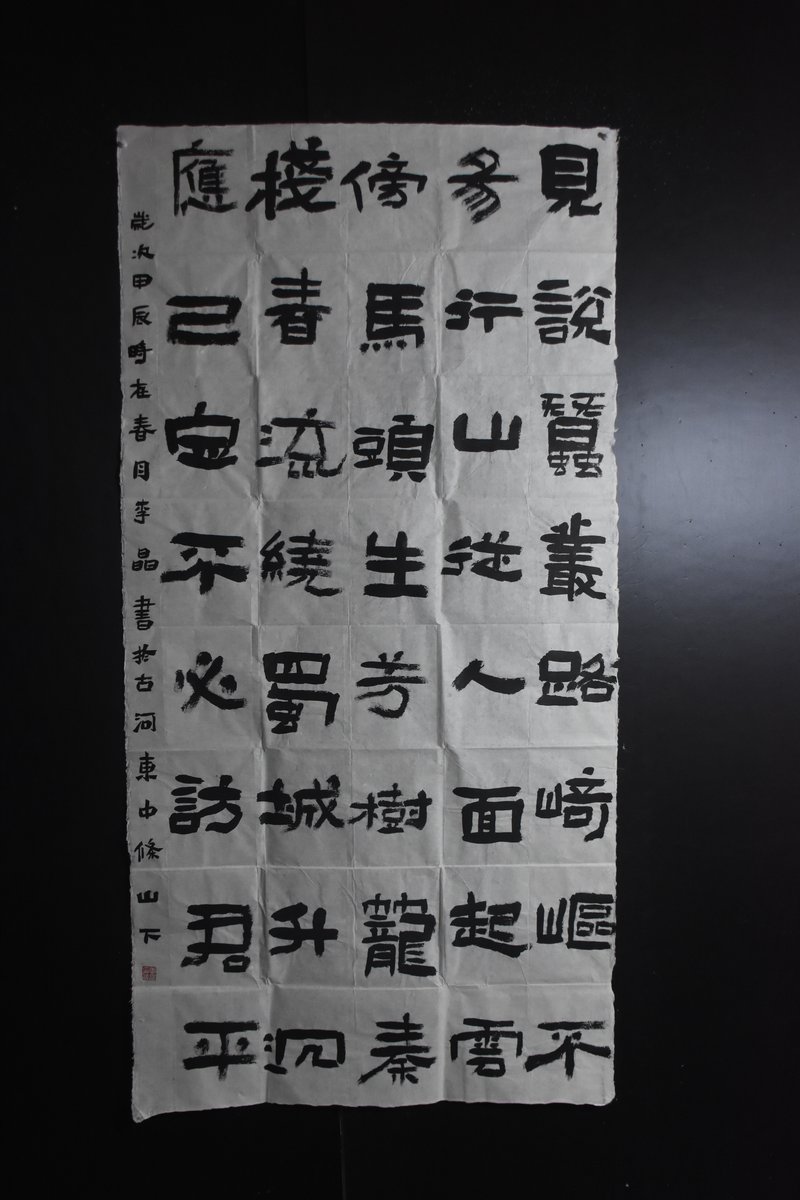 見說蠶叢路崎嶇不
易行山從人面起雲
傍馬頭生芳樹籠秦
棧春流繞蜀城升沉
應已定不必訪君平
歲次甲辰時在春月李晶書於古河東中條山下